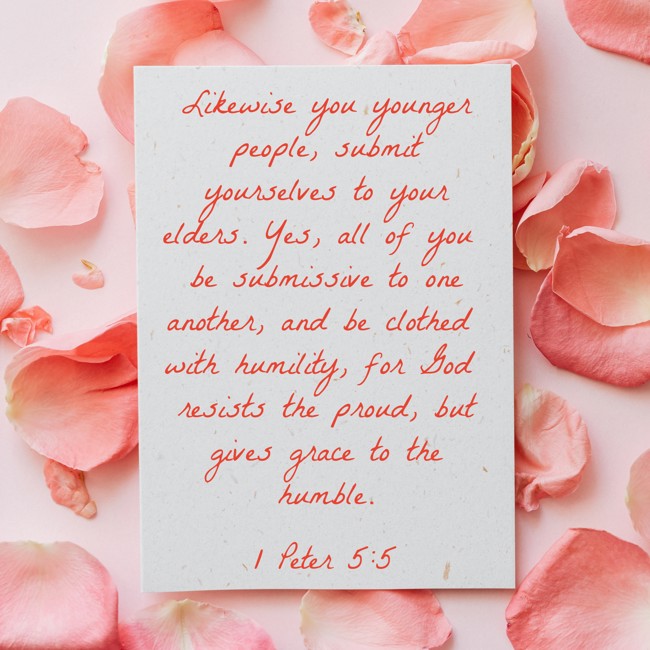 Likewise you younger
people, submit
yourselves to your
elders. Yes, all of you
be submissive to one
another, and be clothed
with humility, for God
resists the proud, but
gives grace to the
humble.
1 Peter 5:5